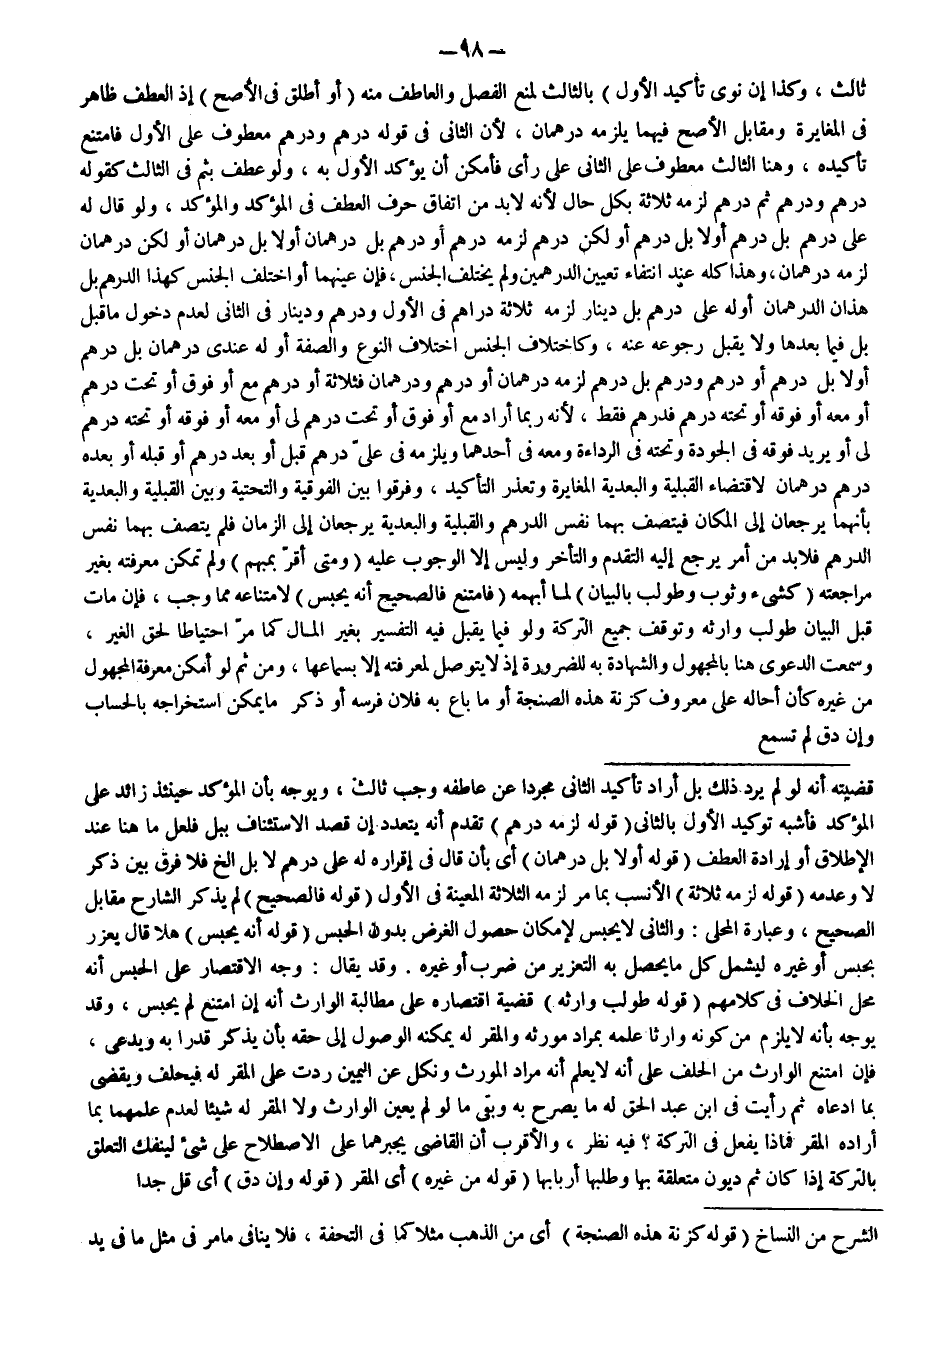 — ٩٨ —
ثالث ، وكذا إن نوى تأكيد الأول ) بالثالث لمنع الفصل والعاطف منه ( أو أطلق فى الأصح ) إذ العطف ظاهر
فى المغايرة ومقابل الأصح فيهما يلزمه درهمان ، لأن الثانى فى قوله درهم ودرهم معطوف على الأول فامتنع
تأكيده ، وهنا الثالث معطوف على الثانى على رأى فأمكن أن يؤكد الأول به ، ولو عطف بثم فى الثالث كقوله
درهم ودرهم ثم درهم لزمه ثلاثة بكل حال لأنه لابد من اتفاق حرف العطف فى المؤكد والمؤكد ، ولو قال له
على درهم بل درهم أولا بل درهم أو لكن درهم لزمه درهم أو درهم بل درهمان أولا بل درهمان أو لكن درهمان
لزمه درهمان ، وهذا كله عند انتفاء تعيين الدرهمين ولم يختلف الجنس ، فإن عينهما أو اختلف الجنس كهذا الدرهم بل
هذان الدرهمان أوله على درهم بل دينار لزمه ثلاثة دراهم فى الأول ودرهم ودينار فى الثانى لعدم دخول ماقبل
بل فيما بعدها ولا يقبل رجوعه عنه ، وكاختلاف الجنس اختلاف النوع والصفة أو له عندى درهمان بل درهم
أولا بل درهم أو درهم ودرهم بل درهم لزمه درهمان أو درهم ودرهمان فثلاثة أو درهم مع أو فوق أو تحت درهم
أو معه أو فوقه أو تحته درهم فدرهم فقط ، لأنه ربما أراد مع أو فوق أو تحت درهم لى أو معه أو فوقه أو تحته درهم
لى أو يريد فوقه فى الجودة وتحته فى الرداءة ومعه فى أحدهما ويلزمه فى علىّ درهم قبل أو بعد درهم أو قبله أو بعده
درهم درهمان لاقتضاء القبلية والبعدية المغايرة وتعذر التأكيد ، وفرقوا بين الفوقية والتحتية وبين القبلية والبعدية
بأنهما يرجعان إلى المكان فيتصف بهما نفس الدرهم والقبلية والبعدية يرجعان إلى الزمان فلم يتصف بهما نفس
الدرهم فلابد من أمر يرجع إليه التقدم والتأخر وليس إلا الوجوب عليه ( ومتى أقرّ بمبهم ) ولم تمكن معرفته بغير
مراجعته ( كشىء وثوب وطولب بالبيان ) لما أبهمه ( فامتنع فالصحيح أنه يحبس ) لامتناعه مما وجب ، فإن مات
قبل البيان طولب وارثه وتوقف جميع التركة ولو فيما يقبل فيه التفسير بغير المال كما مرّ احتياطا لحق الغير ،
وسمعت الدعوى هنا بالمجهول والشهادة به للضرورة إذ لايتوصل لمعرفته إلا بسماعها ، ومن ثم لو أمكن معرفة المجهول
من غيره كأن أحاله على معروف كزنة هذه الصنجة أو ما باع به فلان فرسه أو ذكر مايمكن استخراجه بالحساب
وإن دق لم تسمع
قضيته أنه لو لم يرد ذلك بل أراد تأكيد الثانى مجردا عن عاطفه وجب ثالث ، ويوجه بأن المؤكد حينئذ زائد على
المؤكد فأشبه توكيد الأول بالثانى ( قوله لزمه درهم ) تقدم أنه يتعدد إن قصد الاستئناف ببل فلعل ما هنا عند
الإطلاق أو إرادة العطف ( قوله أولا بل درهمان ) أى بأن قال فى إقراره له على درهم لا بل الخ فلا فرق بين ذكر
لا وعدمه ( قوله لزمه ثلاثة ) الأنسب بما مر لزمه الثلاثة المعينة فى الأول ( قوله فالصحيح ) لم يذكر الشارح مقابل
الصحيح ، وعبارة المحلى : والثانى لايحبس لإمكان حصول الغرض بدون الحبس ( قوله أنه يحبس ) هلا قال يعزر
بحبس أو غيره ليشمل كل مايحصل به التعزير من ضرب أو غيره . وقد يقال : وجه الاقتصار على الحبس أنه
محل الخلاف فى كلامهم ( قوله طولب وارثه ) قضية اقتصاره على مطالبة الوارث أنه إن امتنع لم يحبس ، وقد
يوجه بأنه لايلزم من كونه وارثا علمه بمراد مورثه والمقر له يمكنه الوصول إلى حقه بأن يذكر قدرا به ويدعى ،
فإن امتنع الوارث من الحلف على أنه لايعلم أنه مراد المورث ونكل عن اليمين ردت على المقر له فيحلف ويقضى
بما ادعاه ثم رأيت فى ابن عبد الحق له ما يصرح به وبقى ما لو لم يعين الوارث ولا المقر له شيئا لعدم علمهما بما
أراده المقر فماذا يفعل فى التركة ؟ فيه نظر ، والأقرب أن القاضى يجبرهما على الاصطلاح على شئ لينفك التعلق
بالتركة إذا كان ثم ديون متعلقة بها وطلبها أربابها ( قوله من غيره ) أى المقر ( قوله وإن دق ) أى قل جدا
الشرح من النساخ ( قوله كزنة هذه الصنجة ) أى من الذهب مثلا كما فى التحفة ، فلا ينافى مامر فى مثل ما فى يد